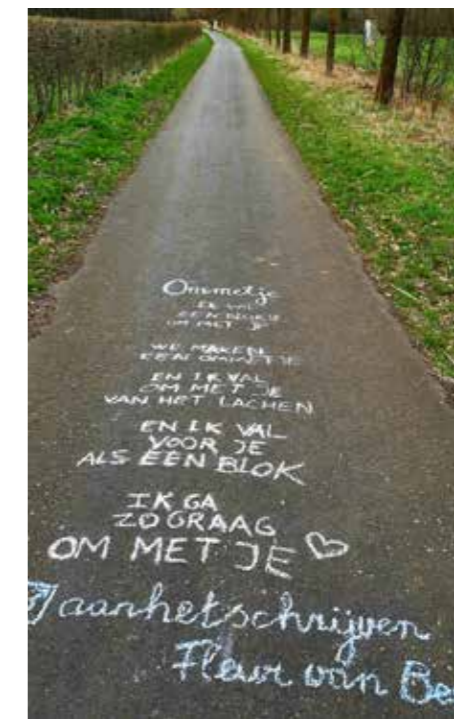 Ommetje
IK WIL
EEN BLOKJE
OM MET JE
WE MAKEN
EEN OMMETJE
EN IK VAL
OM MET JE
VAN HET LACHEN
EN IK VAL
VOOR JE
ALS EEN BLOK
IK GA
ZO GRAAG
OM MET JE
aanhetschrijven
Fleur van Be